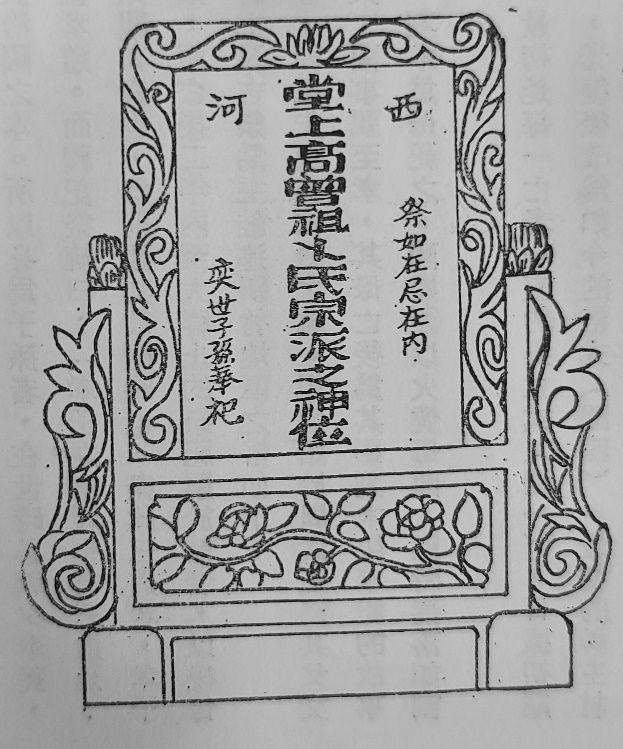 西河
祭如在忌在内
堂上高曾祖卜氏宗派之神位
奕世子孫奉祀